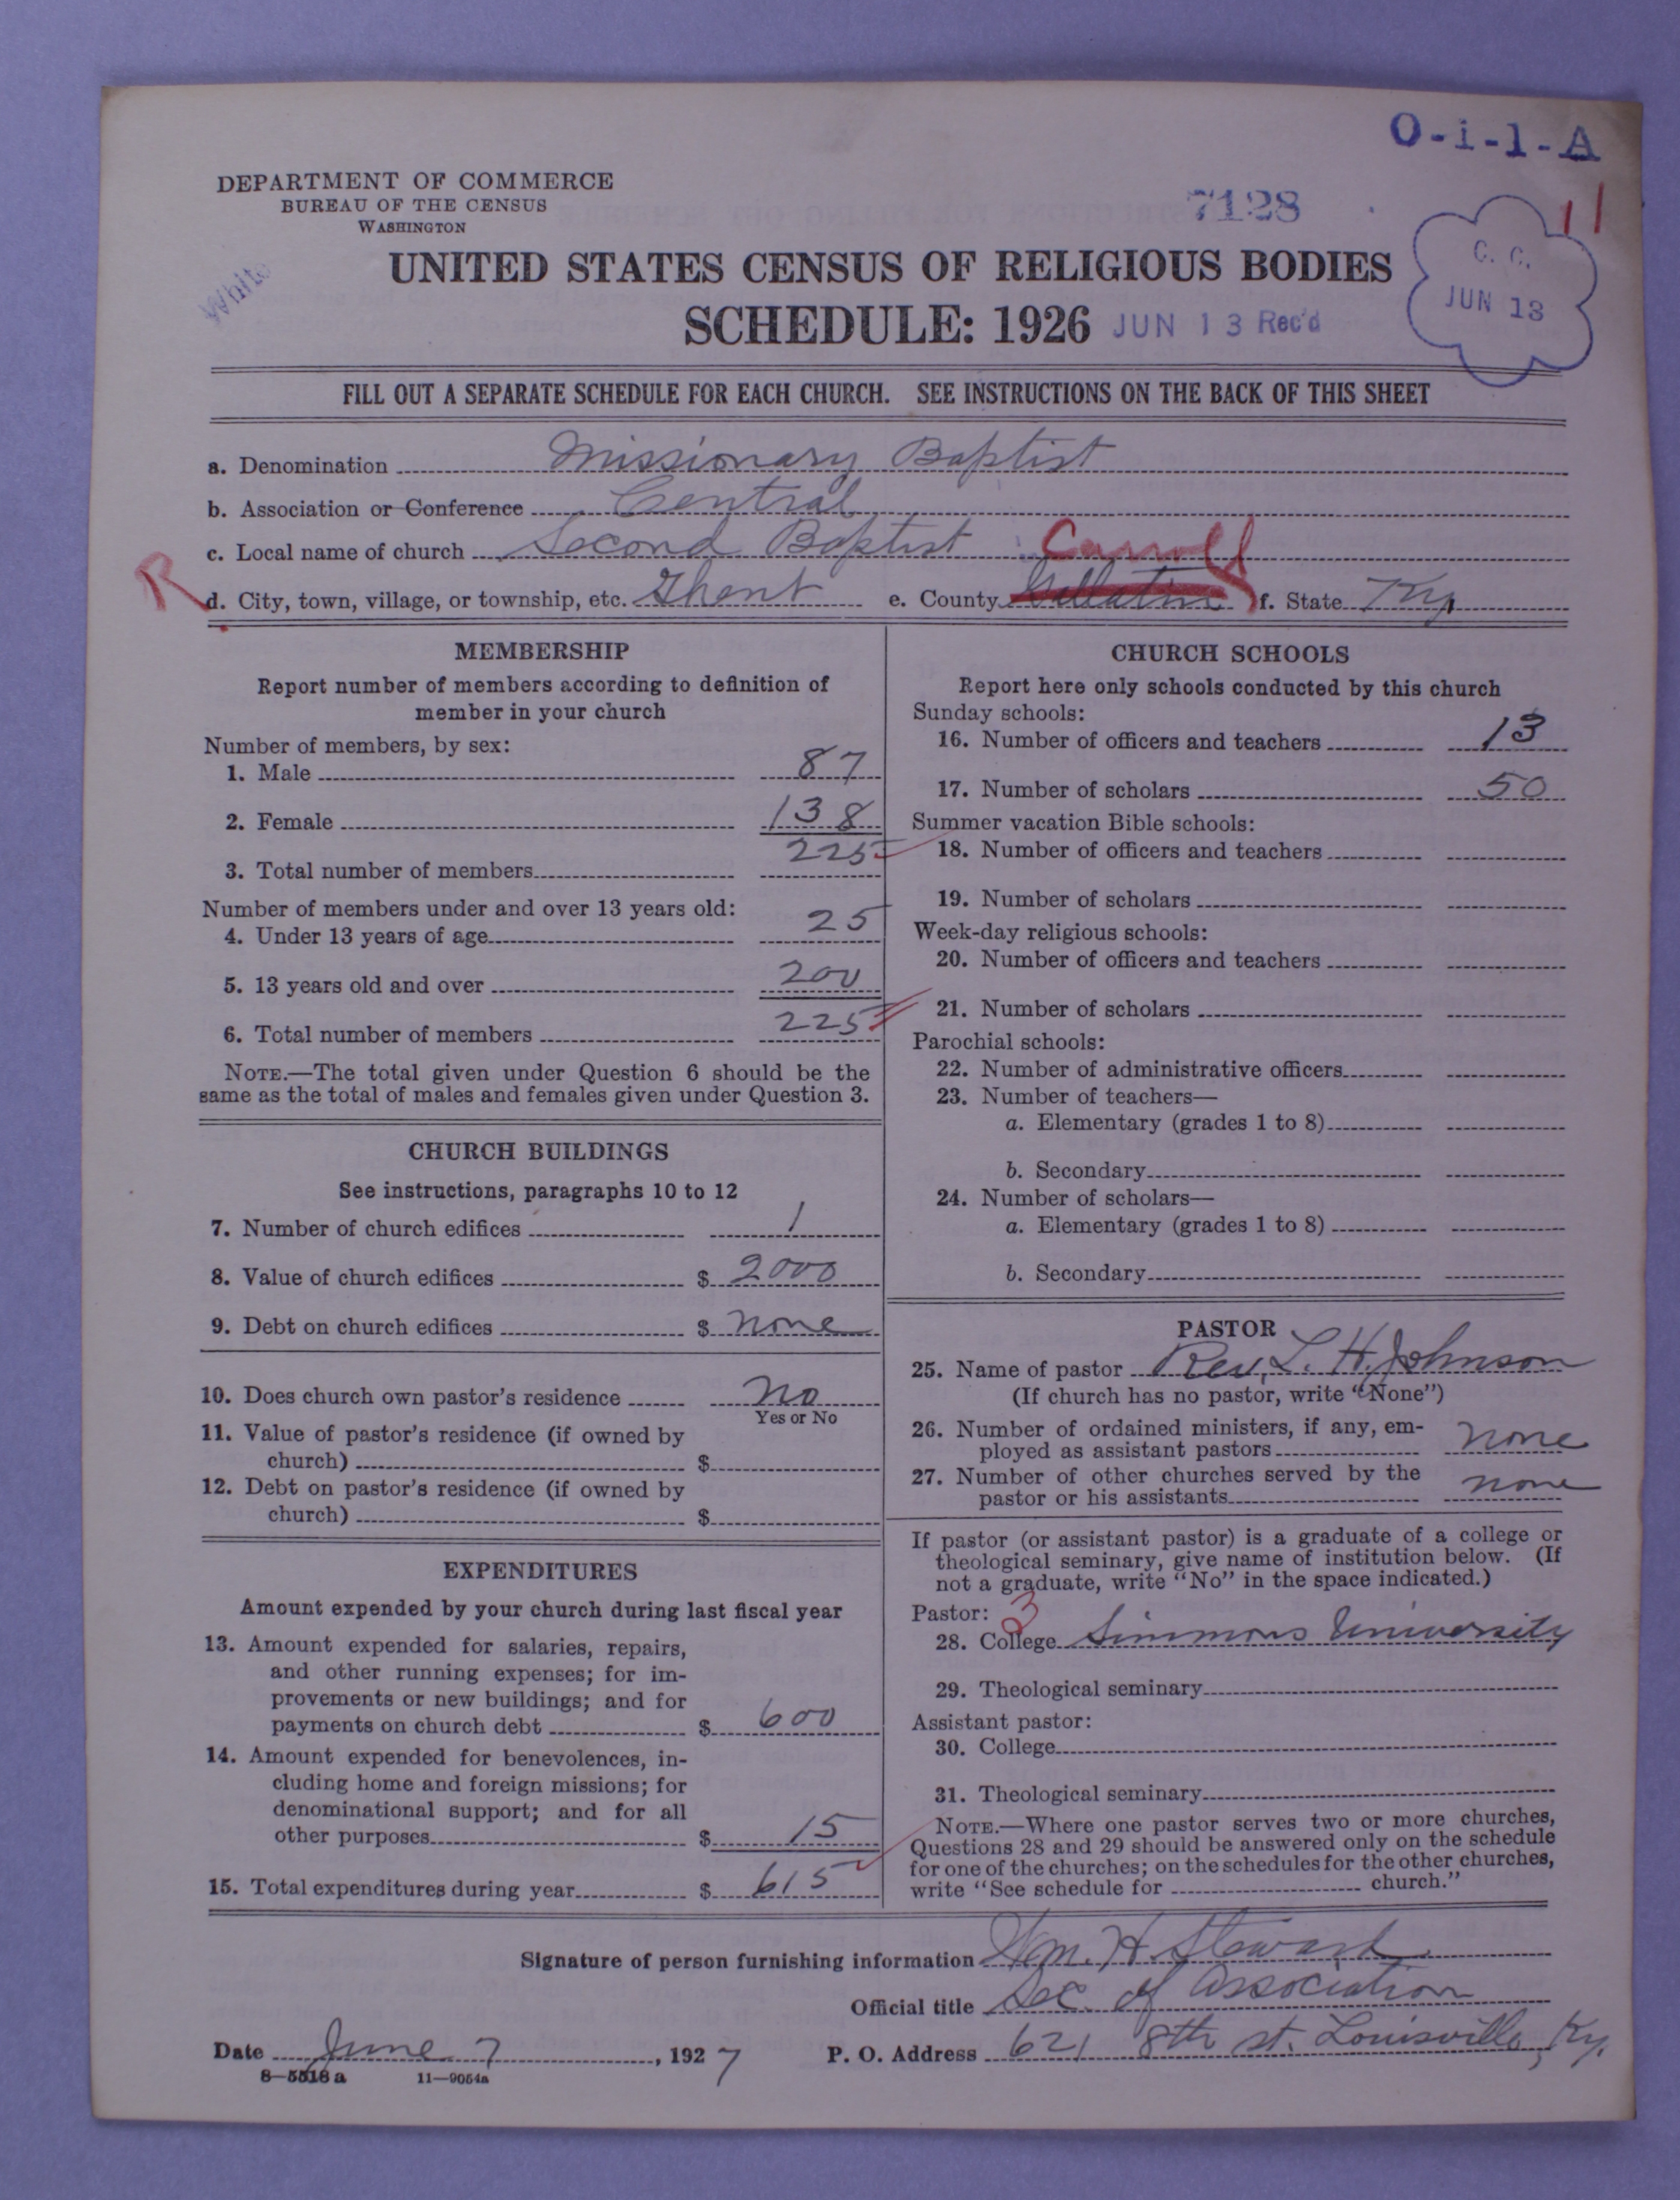 O-i-1-A
DEPARTMENT OF COMMERCE
BUREAU OF THE CENSUS
WASHINGTON
7128
11
White
UNITED STATES CENSUS OF RELIGIOUS BODIES
SCHEDULE: 1926 JUN 13 Rec'd
C. C.
JUN 13
FILL OUT A SEPARATE SCHEDULE FOR EACH CHURCH. SEE INSTRUCTIONS ON THE BACK OF THIS SHEET
a. Denomination Missionary Baptist
b. Association or Conference Central
c. Local name of church Second Baptist
Carroll
R
d. City, town, village, or township, etc. Ghent e. County Gallatin f. State Ky
MEMBERSHIP
Report number of members according to definition of
member in your church
Number of members, by sex:
1. Male 87
2. Female 138
3. Total number of members 225
Number of members under and over 13 years old:
4. Under 13 years of age 25
5. 13 years old and over 200
6. Total number of members 225
NOTE.—The total given under Question 6 should be the
same as the total of males and females given under Question 3.
CHURCH BUILDINGS
See instructions, paragraphs 10 to 12
7. Number of church edifices 1
8. Value of church edifices $ 2000
9. Debt on church edifices $ none
10. Does church own pastor's residence no
Yes or No
11. Value of pastor's residence (if owned by
church) $
12. Debt on pastor's residence (if owned by
church) $
EXPENDITURES
Amount expended by your church during last fiscal year
13. Amount expended for salaries, repairs,
and other running expenses; for im-
provements or new buildings; and for
payments on church debt $ 600
14. Amount expended for benevolences, in-
cluding home and foreign missions; for
denominational support; and for all
other purposes $ 15
15. Total expenditures during year $ 615
CHURCH SCHOOLS
Report here only schools conducted by this church
Sunday schools:
16. Number of officers and teachers 13
17. Number of scholars 50
Summer vacation Bible schools:
18. Number of officers and teachers
19. Number of scholars
Week-day religious schools:
20. Number of officers and teachers
21. Number of scholars
Parochial schools:
22. Number of administrative officers
23. Number of teachers—
a. Elementary (grades 1 to 8)
b. Secondary
24. Number of scholars—
a. Elementary (grades 1 to 8)
b. Secondary
PASTOR
25. Name of pastor Rev. L. H. Johnson
(If church has no pastor, write "None")
26. Number of ordained ministers, if any, em-
ployed as assistant pastors none
27. Number of other churches served by the
pastor or his assistants none
If pastor (or assistant pastor) is a graduate of a college or
theological seminary, give name of institution below. (If
not a graduate, write "No" in the space indicated.)
Pastor: 3
28. College Simmons University
29. Theological seminary
Assistant pastor:
30. College
31. Theological seminary
NOTE.—Where one pastor serves two or more churches,
Questions 28 and 29 should be answered only on the schedule
for one of the churches; on the schedules for the other churches,
write "See schedule for church."
Signature of person furnishing information Wm. H. Steward
Official title Sec. of Association
Date June 7, 1927 P. O. Address 621 8th st. Louisville, Ky.
8—5518a 11—9054a